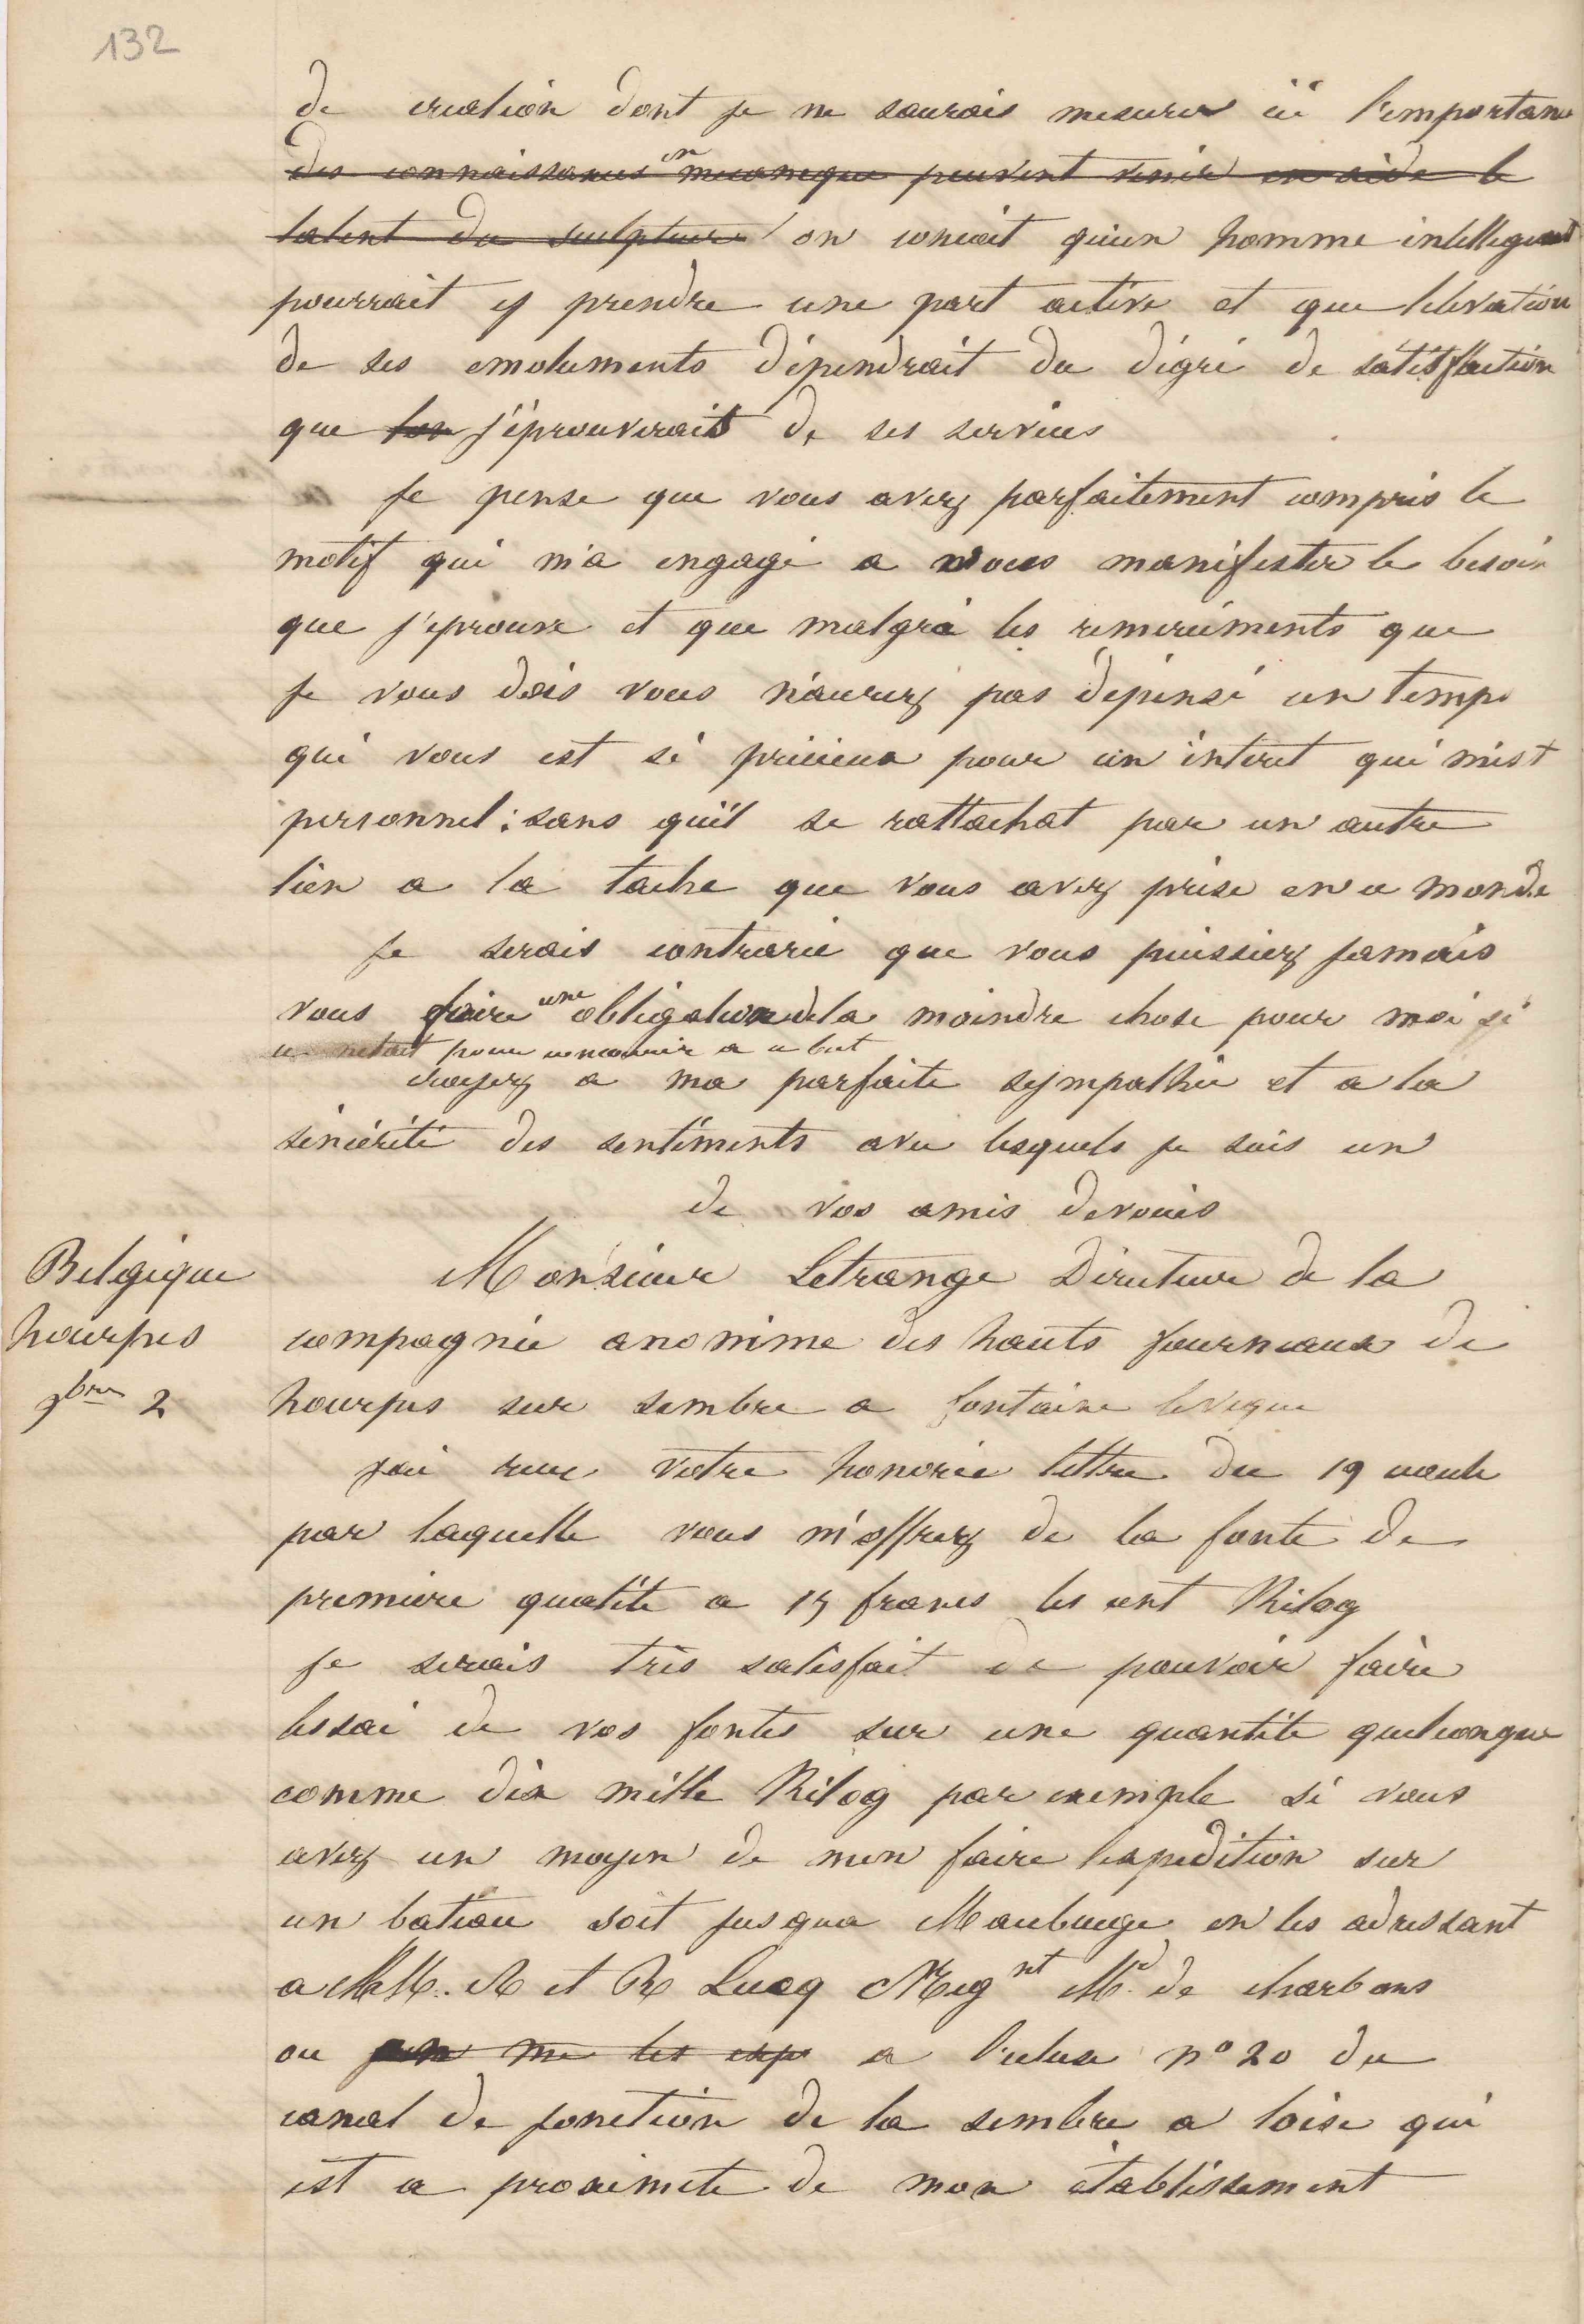 132
de création dont je ne saurais mesurer ici l'importance
des connaissances en mecaneque peuvent venir en aide le
talent du sculpteur on concoit qu'un homme intelligent
pourrait y prendre une part active et que lelevation
de ses emoluments dépendrait du dégré de satisfaction
que lon j'éprouverais de ses services
Je pense que vous avez parfaitement compris le
motif qui m'a engagé a vous manifester le besoin
que j'eprouve et que malgré les remerciments que
je vous dois vous n'aurez pas dépensé un temps
qui vous est si précieux pour un interet qui m'est
personnel : sans qu'il se rattachat par un autre
lien a la tache que vous avez prise en ce monde
Je serais contrarié que vous puissiez jamais
vous faire une obligation de la moindre chose pour moi si
ce netait pour concourir a ce but
croyez a ma parfaite sympathie et a la
sincérité des sentiments avec lesquels je suis un
de vos amis devoués
Belgique
hourpes
9bre 2
Monsieur Letrange Directeur de la
compagnie anonime des hauts fourneaux de
hourpes sur sambre a fontaine leveque
jai reçu votre honorée lettre du 19 ecoulé
par laquelle vous m'offrez de la fonte de
premiere qualité a 15 francs les cent Kilog
Je serais très satisfait de pouvoir faire
lessai de vos fontes sur une quantité quelconque
comme dix mille Kilog par exemple si vous
avez un moyen de men faire lexpedition sur
un bateau soit jusqua Maubeuge en les adressant
a MM. R et R Lucq Negnt Md de charbons
ou me les exp a l'ecluse n° 20 du
canal de jonction de la sambre a loise qui
est a proximité de mon établissement